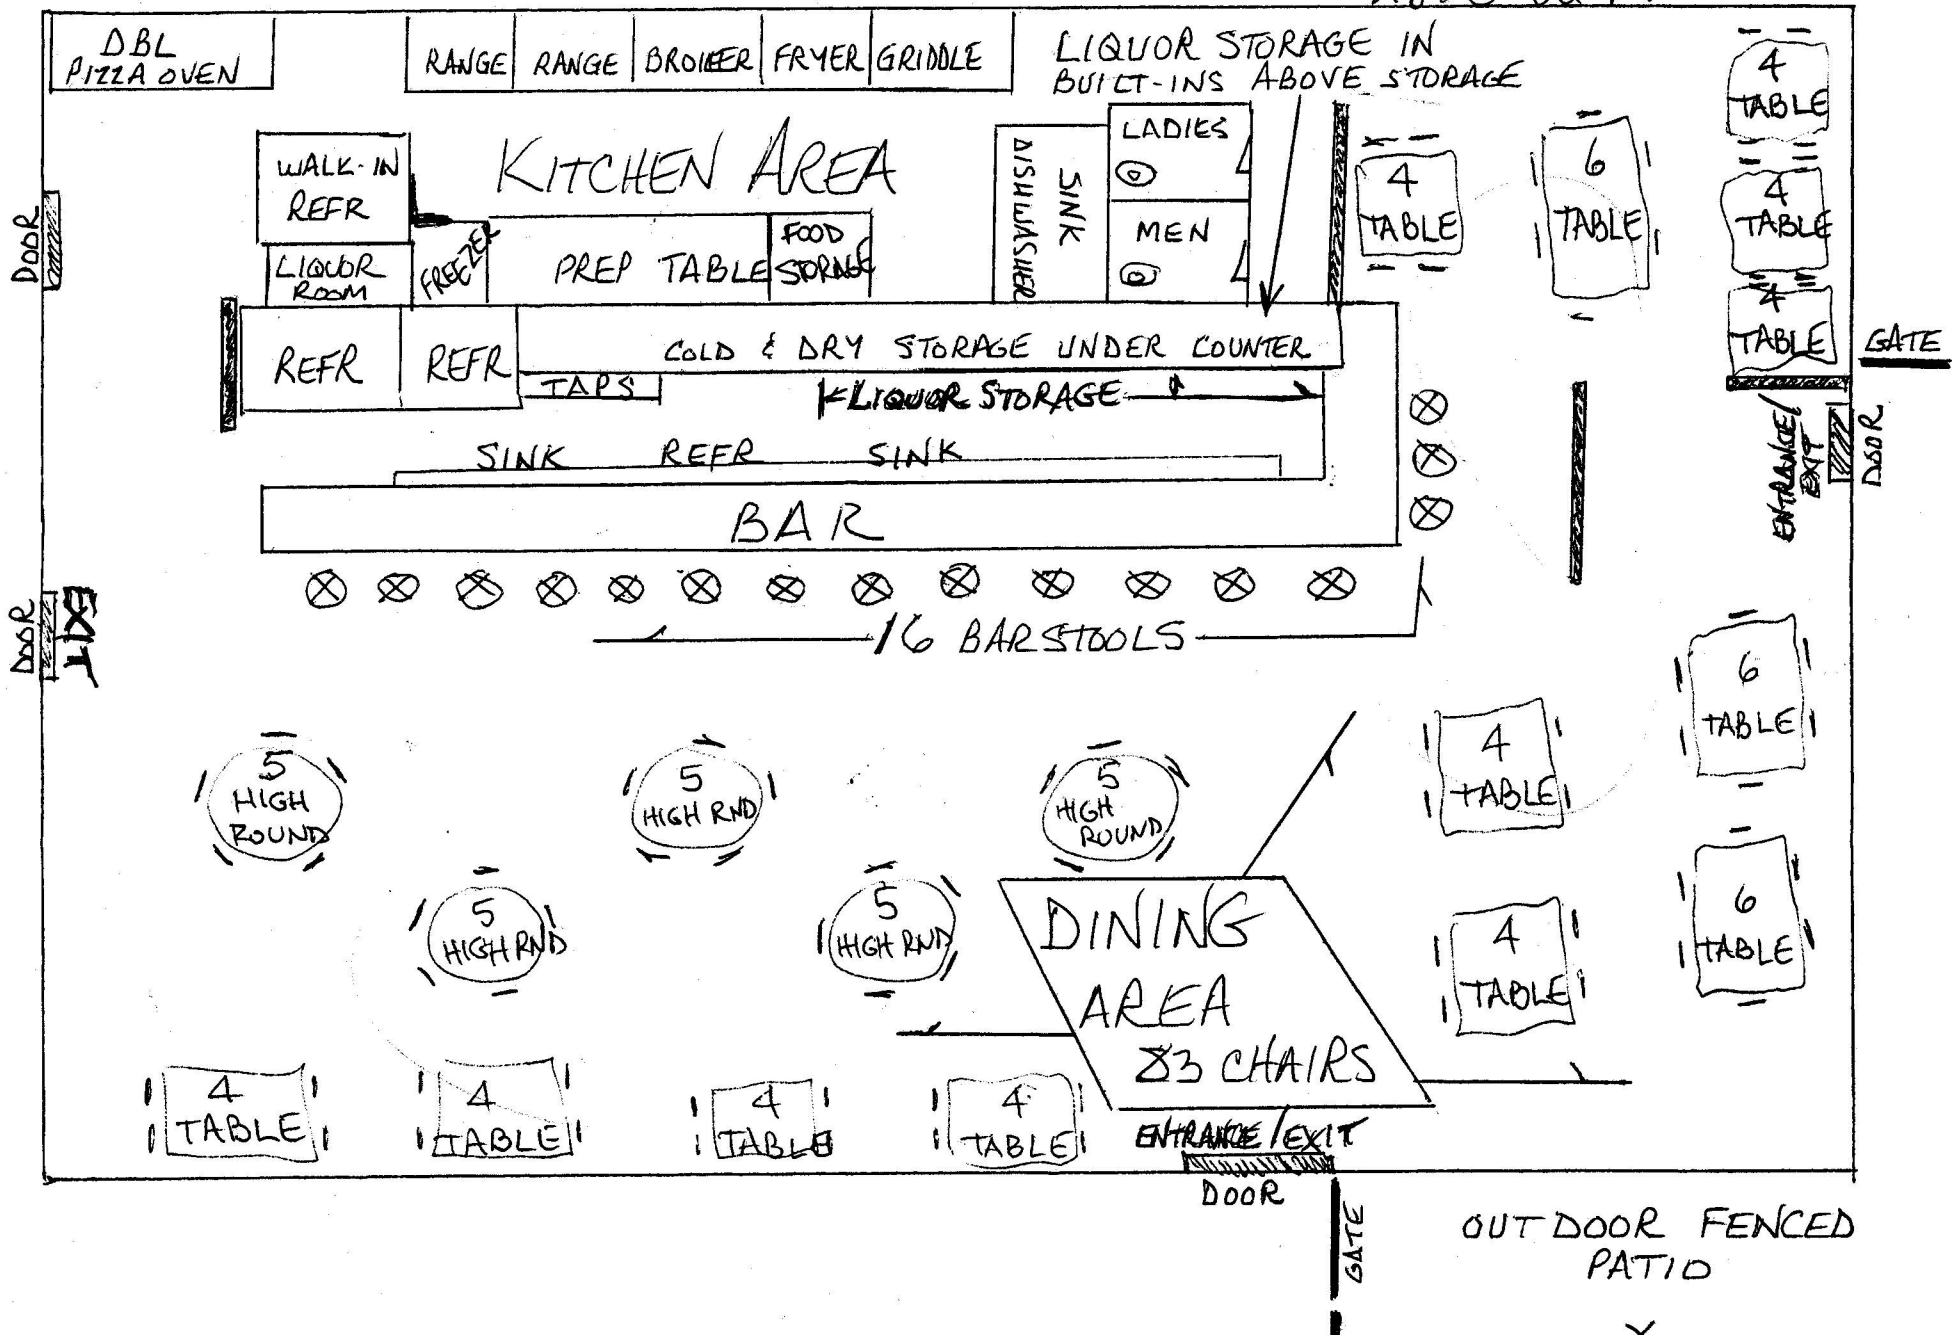 DBL
PIZZA OVEN
RANGE
RANGE
BROILER
FRYER
GRIDDLE
LIQUOR STORAGE IN
BUILT-INS ABOVE STORAGE
4
TABLE
WALK-IN
REFR
KITCHEN AREA
DISHWASHER
SINK
LADIES
MEN
4
TABLE
6
TABLE
4
TABLE
4
TABLE
DOOR
LIQUOR
ROOM
FREEZER
PREP TABLE
FOOD
STORAGE
REFR
REFR
COLD & DRY STORAGE UNDER COUNTER
TAPS
LIQUOR STORAGE
GATE
ENTRANCE/
EXIT
DOOR
SINK
REFR
SINK
BAR
DOOR
EXIT
16 BARSTOOLS
5
HIGH
ROUND
5
HIGH RND
5
HIGH
ROUND
4
TABLE
6
TABLE
5
HIGH RND
5
HIGH RND
DINING
AREA
83 CHAIRS
4
TABLE
6
TABLE
4
TABLE
4
TABLE
4
TABLE
4
TABLE
ENTRANCE/EXIT
DOOR
GATE
OUTDOOR FENCED
PATIO